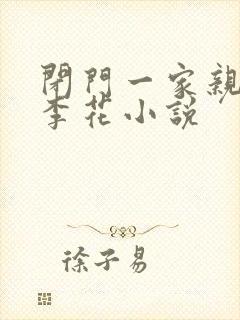 閉門一家親
李花小說
徐子易